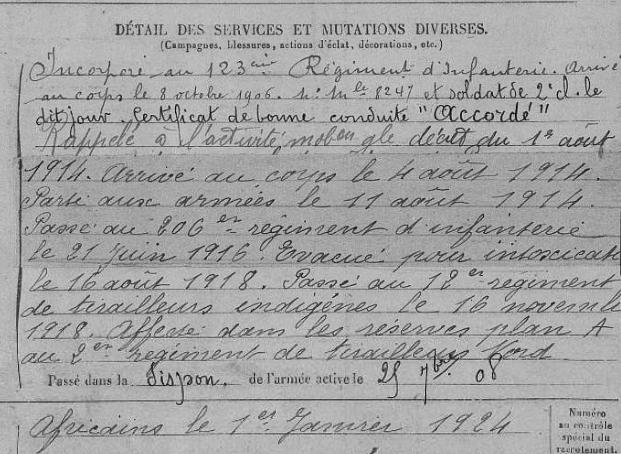 DÉTAIL DES SERVICES ET MUTATIONS DIVERSES.
(Campagnes, blessures, actions d'éclat, décorations, etc.)
Incorporé au 123eme Régiment d'Infanterie. Arrivé
au corps le 8 octobre 1906. n: mle 8247 et soldat de 2e cl. le
dit jour. Certificat de bonne conduite "Accordé"
Rappelé à l'activité, mobon gle décret du 1er août
1914. Arrivé au corps le 4 août 1914.
Parti aux armées le 11 août 1914.
Passé au 206 er régiment d'infanterie
le 21 Juin 1916. Evacué pour intoxicat
le 16 août 1918. Passé au 12 er régiment
de tirailleurs indigènes le 16 novemb
1918. Affecté dans les réserves plan A
au 2 er régiment de tirailleurs Nord
Passé dans la Dispon. de l'armée active le 25 7bre 08
Africains le 1er Janvier 1924
Numéro
au contrôle
spécial du
recrutement.